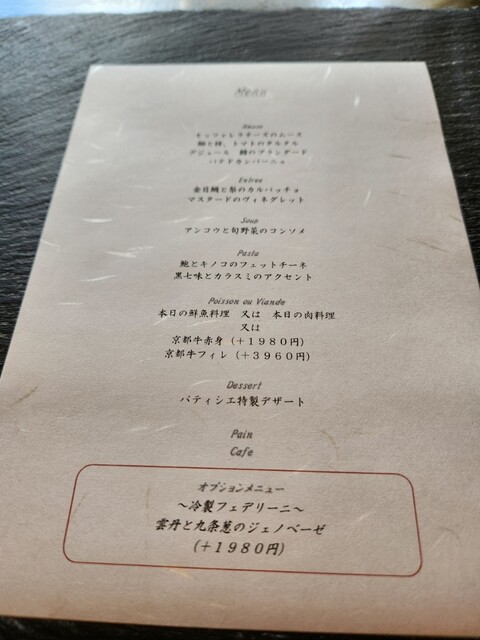 Menu
モッツァレラチーズのムース
トマトのタルタル
グジェール 鱈のブランダード
パテドカンパーニュ
Entree
金目鯛と梨のカルパッチョ
マスタードのヴィネグレット
Soup
アンコウと旬野菜のコンソメ
Pasta
鮑とキノコのフェットチーネ
黒七味とカラスミのアクセント
Poisson ou Viande
本日の鮮魚料理 又は 本日の肉料理
又は
京都牛赤身(+1980円)
京都牛フィレ(+3960円)
Dessert
パティシエ特製デザート
Pain
Cafe
オプションメニュー
~冷製フェデリーニ~
雲丹と九条葱のジェノベーゼ
(+1980円)